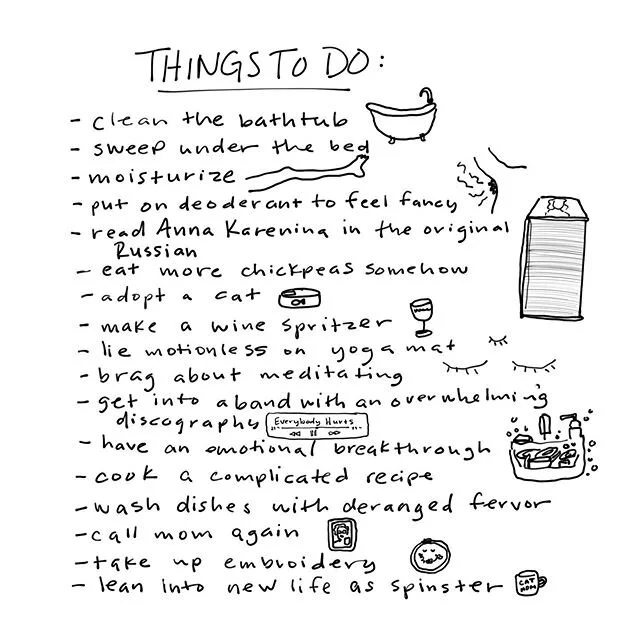 THINGS TO DO:
- clean the bathtub
- sweep under the bed
- moisturize
- put on deoderant to feel fancy
- read Anna Karenina in the original
Russian
- eat more chickpeas somehow
- adopt a cat
- make a wine spritzer
- lie motionless on yoga mat
- brag about meditating
- get into a band with an overwhelming
discography
Everybody Hurts
- have an emotional breakthrough
- cook a complicated recipe
- wash dishes with deranged fervor
- call mom again
- take up embroidery
- lean into new life as spinster
CAT
MOM